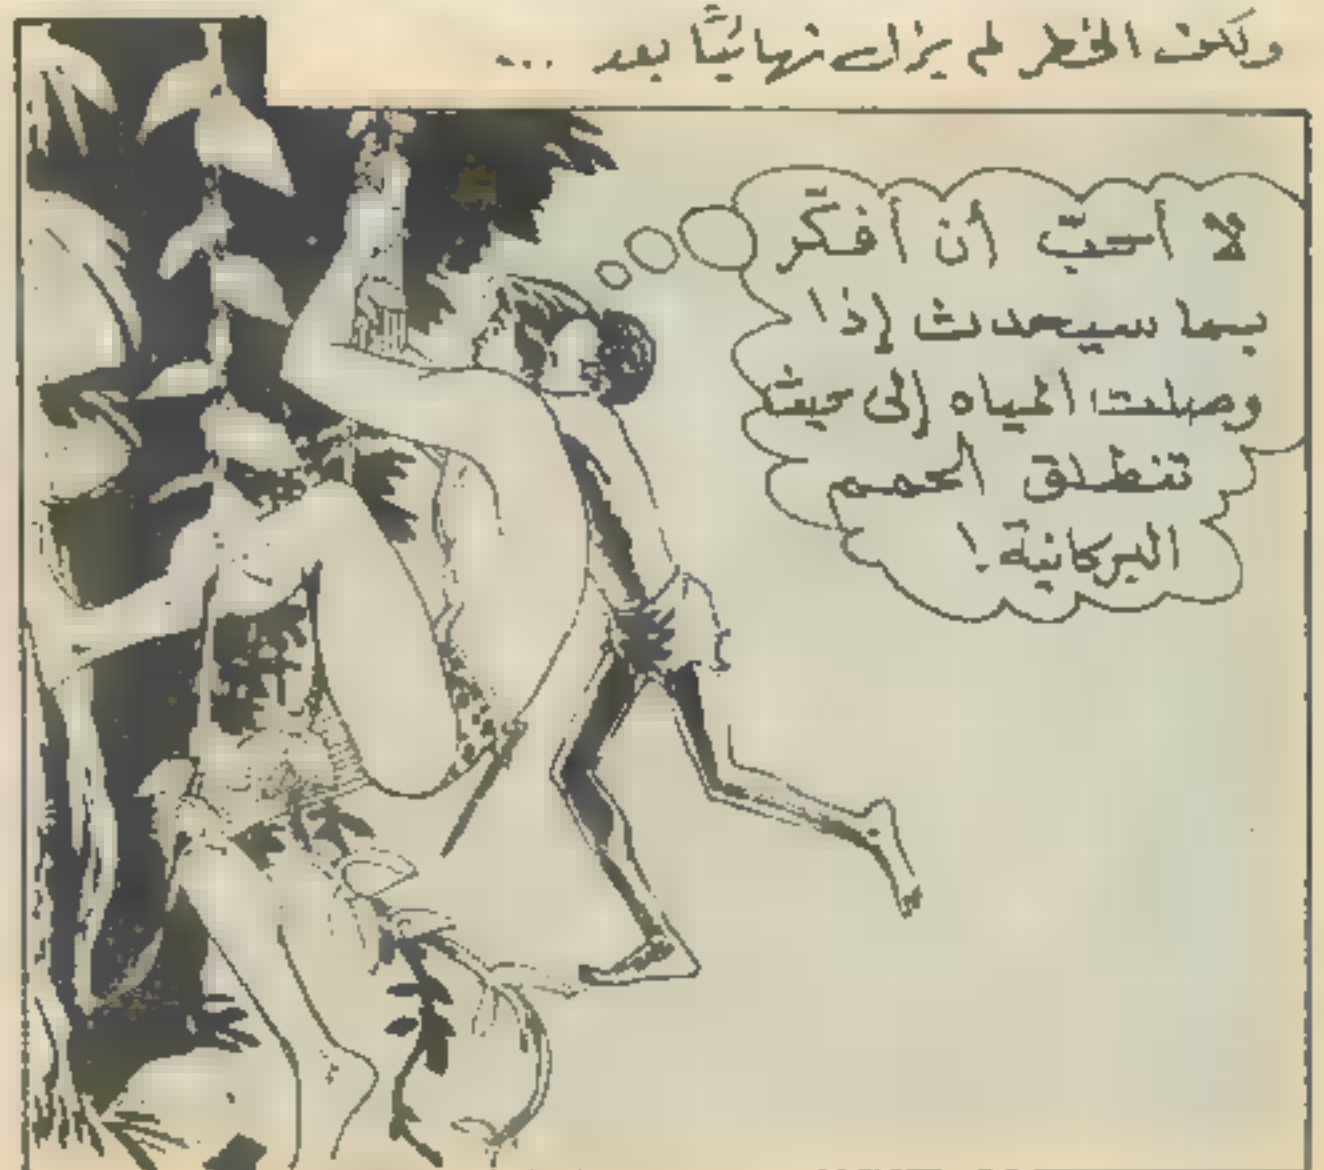 ولكن الخطر لم يزل نهائيًّا بعد ...
لا أحبّ أن أفكّر
بما سيحدث إذا
وصلت المياه إلى حيث
تنطلق الحمم
البركانية !